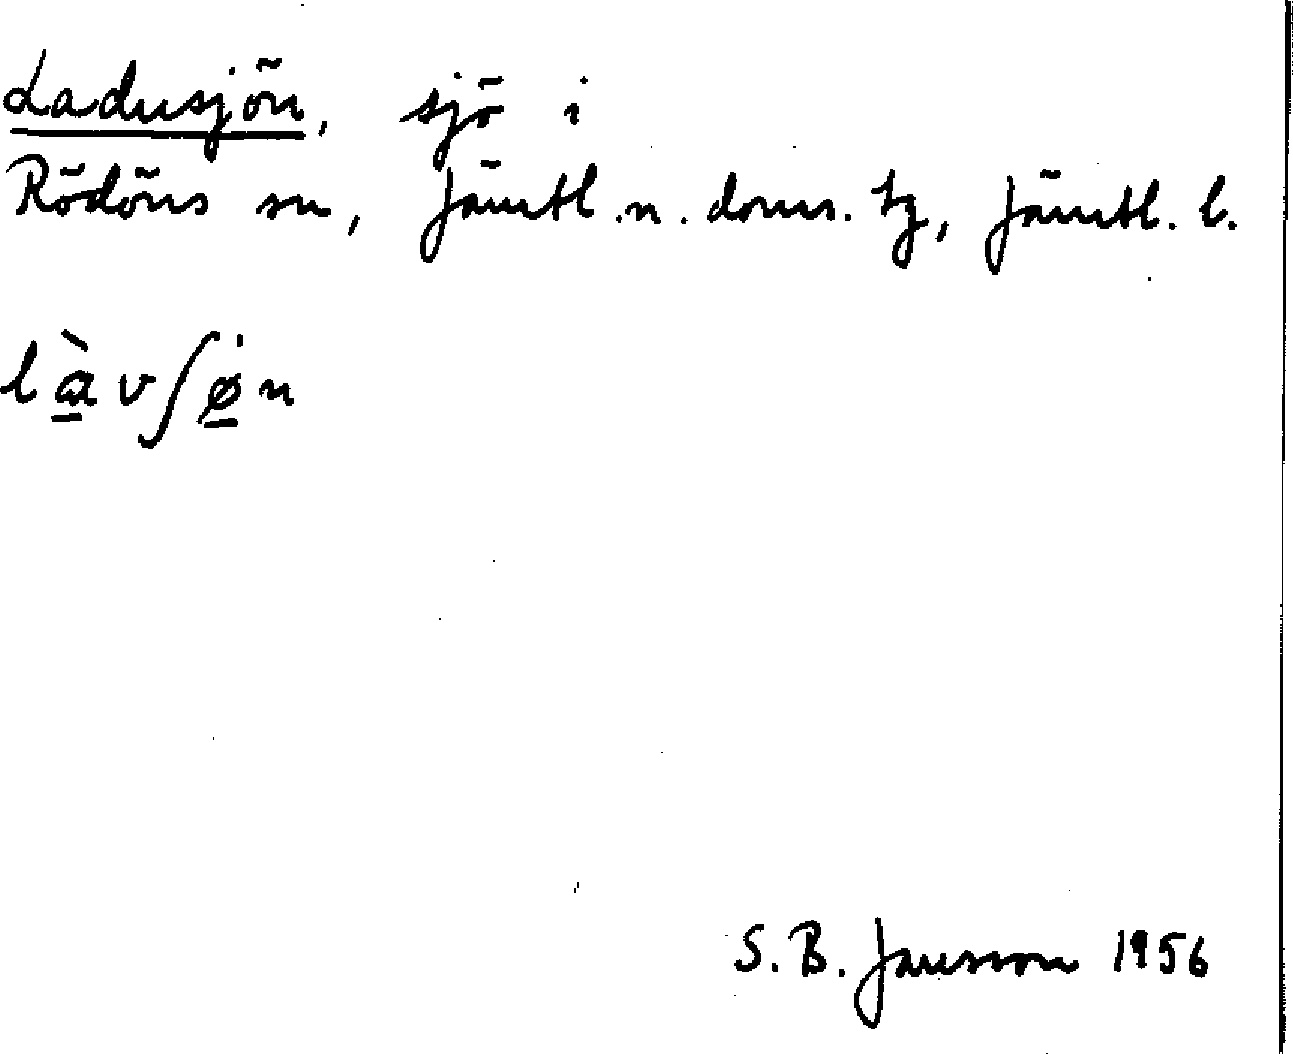 Ladusjön, sjö i
Rödöns sn, Jämtl. n. doms. tg, Jämtl. l.
là̱vʃø̱̇n
S. B. Jansson 1956